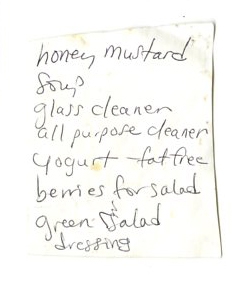 honey mustard
Soup
glass cleaner
all purpose cleaner
yogurt - fat free
berries for salad
green salad
dressing